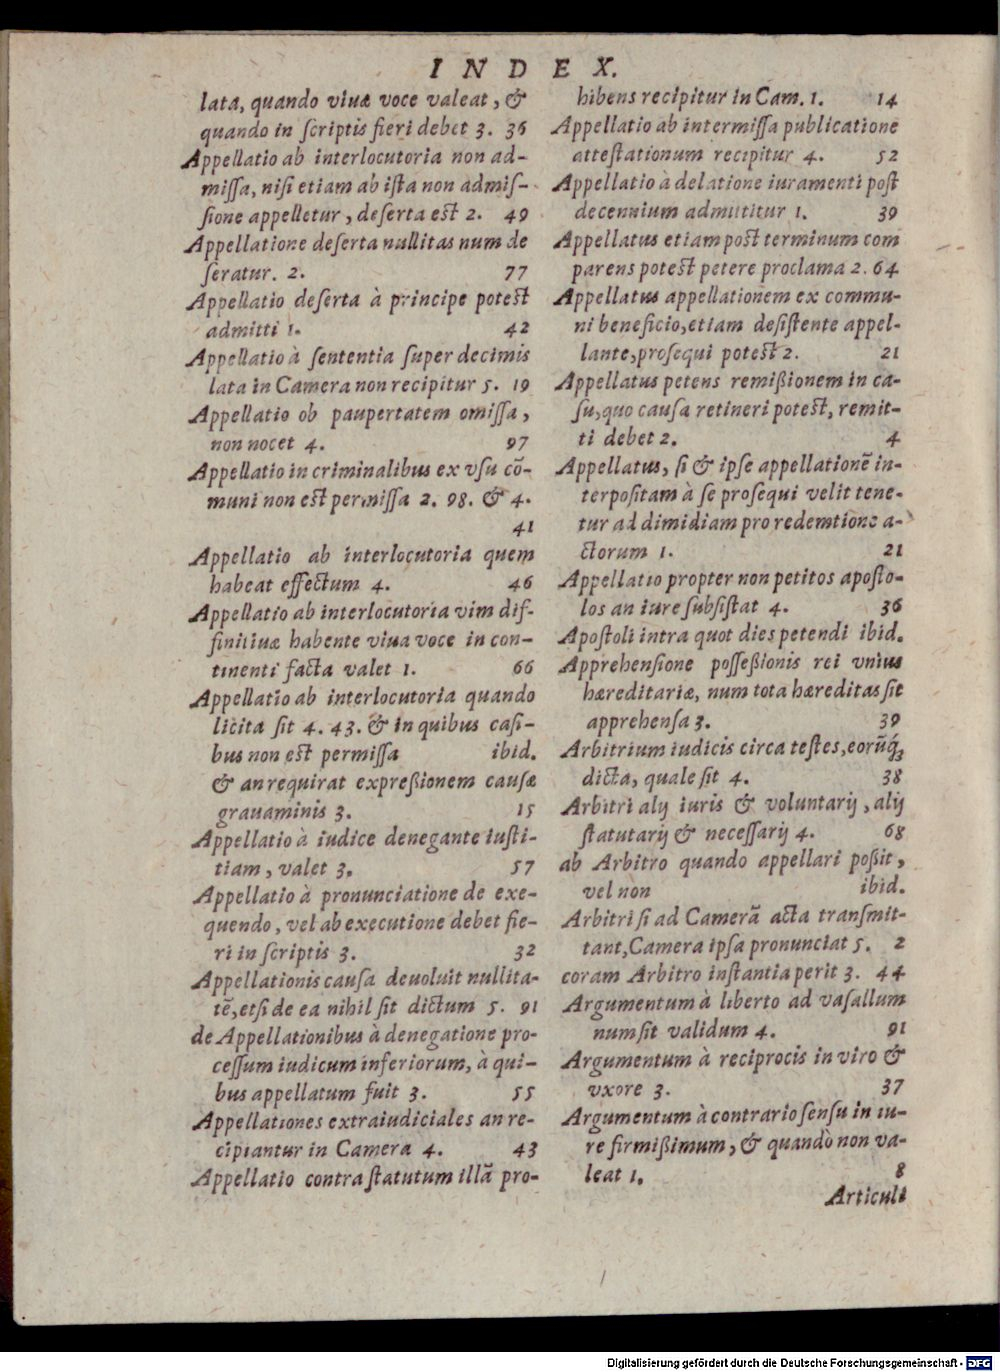 INDEX.
lata, quando viuæ voce valeat, &
quando in ſcriptis fieri debet 3. 36
Appellatio ab interlocutoria non ad-
miſſa, niſi etiam ab iſta non admiſ-
ſione appelletur, deſerta est 2. 49
Appellatione deſerta nullitas num de
ſeratur. 2. 77
Appellatio deſerta à principe potest
admitti 1. 42
Appellatio à ſententia ſuper decimis
lata in Camera non recipitur 5. 19
Appellatio ob paupertatem omiſſa,
non nocet 4. 97
Appellatio in criminalibus ex vſu cõ-
muni non est permiſſa 2. 98. & 4.
41
Appellatio ab interlocutoria quem
habeat effectum 4. 46
Appellatio ab interlocutoria vim dif-
finitiuæ habente viua voce in con-
tinenti facta valet 1. 66
Appellatio ab interlocutoria quando
licita ſit 4. 43. & in quibus caſi-
bus non est permiſſa ibid.
& an requirat expreßionem cauſæ
grauaminis 3. 15
Appellatio à iudice denegante iuſti-
tiam, valet 3. 57
Appellatio à pronunciatione de exe-
quendo, vel ab executione debet fie-
ri in ſcriptis 3. 32
Appellationis cauſa deuoluit nullita-
tẽ, etſi de ea nihil ſit dictum 5. 91
de Appellationibus à denegatione pro-
ceſſum iudicum inferiorum, à qui-
bus appellatum fuit 3. 55
Appellationes extraiudiciales an re-
cipiantur in Camera 4. 43
Appellatio contra ſtatutum illã pro-
hibens recipitur in Cam. 1. 14
Appellatio ab intermiſſa publicatione
atteſtationum recipitur 4. 52
Appellatio à delatione iuramenti poſt
decennium admittitur 1. 39
Appellatus etiam post terminum com
parens potest petere proclama 2. 64
Appellatus appellationem ex commu-
ni beneficio, etiam deſiſtente appel-
lante, proſequi potest 2. 21
Appellatus petens remißionem in ca-
ſu, quo cauſa retineri potest, remit-
ti debet 2. 4
Appellatus, ſi & ipſe appellationẽ in-
terpoſitam à ſe proſequi velit tene-
tur ad dimidiam pro redemtione a-
ctorum 1. 21
Appellatio propter non petitos apoſto-
los an iure ſubſiſtat 4. 36
Apoſtoli intra quot dies petendi ibid.
Apprehenſione poſſeßionis rei vnius
hæreditariæ, num tota hæreditas ſit
apprehenſa 3. 39
Arbitrium iudicis circa teſtes, eorũq́;
dicta, quale ſit 4. 38
Arbitri alij iuris & voluntarij, alij
ſtatutarij & neceſſarij 4. 68
ab Arbitro quando appellari poßit,
vel non ibid.
Arbitri ſi ad Camerã acta tranſmit-
tant, Camera ipſa pronunciat 5. 2
coram Arbitro inſtantia perit 3. 44
Argumentum à liberto ad vaſallum
num ſit validum 4. 91
Argumentum à reciprocis in viro &
vxore 3. 37
Argumentum à contrario ſenſu in iu-
re firmißimum, & quandò non va-
leat 1. 8
Articuli
Digitalisierung gefördert durch die Deutsche Forschungsgemeinschaft - DFG